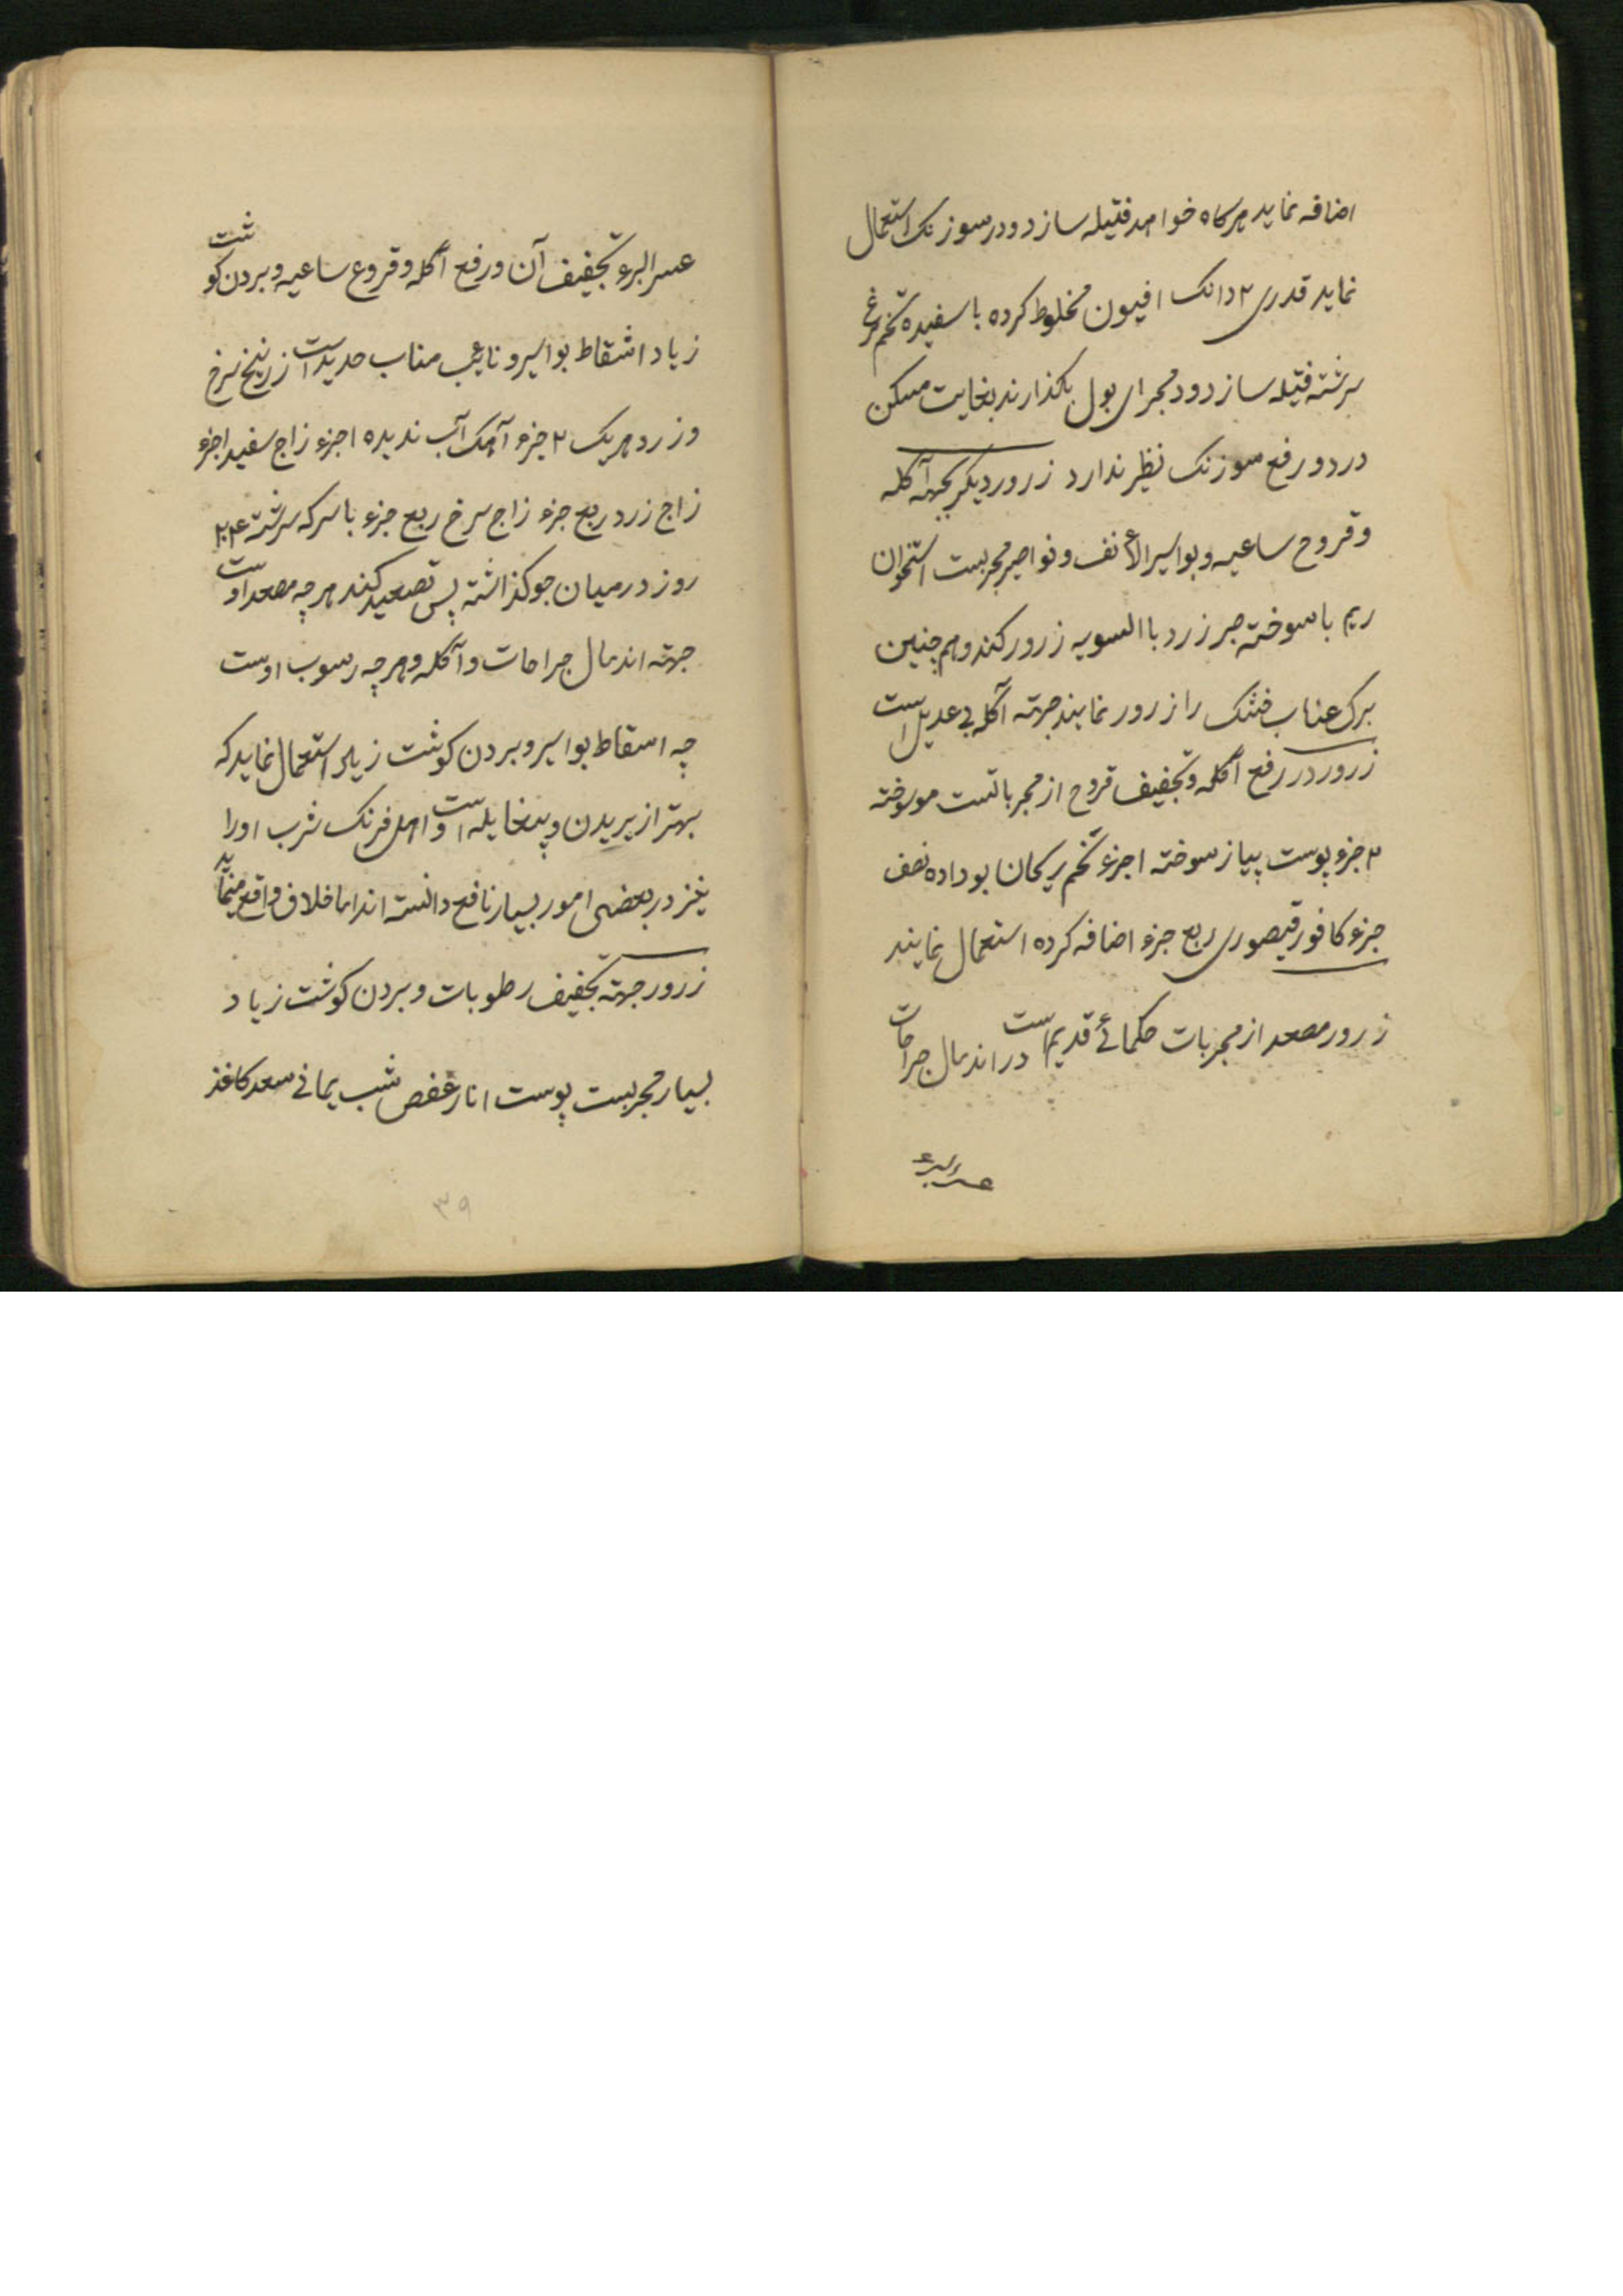 اضافه نماید هرکاه خواهد فتیله سازد و در سوزنک استعمال
نماید قدری ۲ دانک افیون مخلوط کرده با سفیده تخم مرغ
سرشته فتیله سازد و در مجرای بول بکذارند بغایت مسکن
درد و رفع سوزنک نظیر ندارد زرور دیکر بجهة آکله
و قروح ساعیه و بواسیر الانف و نواصیر مجربست استخوان
ریم با سوخته صبر زرد باالسویه زرور کنند و هم چنین
برک عناب خشک را زرور نمایند جهته آکله بی عدیل است
زرور در رفع آکله و تجفیف قروح از مجرباتست مو سوخته
۲ جزء پوست پیاز سوخته ۱ جزء تخم ریحان بو داده نصف
جزء کافور قیصوری ربع جزء اضافه کرده استعمال نمایند
زرور مصعد از مجربات حکمائے قدیم است در اندمال جراحات
عسر البرء
عسر البرء تجفیف آن و رفع آکله و قروع ساعیه و بردن کوشت
زیاد اشقاط بواسیر و نایب مناب حدید است زرنیخ سرخ
و زرد هر یک ۲ جزء آهک آب ندیده ۱ جزء زاج سفید ۱ جزء
زاج زرد ربع جزء زاج سرخ ربع جزء با سرکه سرشته
روز در میان جو کذاشته پس تصعید کنند هر چه مصعد اوست
جهته اندمال جراحات و آکله و هر چه رسوب اوست
چه اسقاط بواسیر و بردن کوشت زیاد استعمال نماید که
بهتر از بریدن و بیغایله است و اهل فرنک شرب او را
نیز در بعضی امور بسیار نافع دانسته اند اما خلاف واقع مینماید
زرور جهته تجفیف رطوبات و بردن کوشت زیاد
بسیار مجربست پوست انار عفص شب یمانی سعد کاغذ
۳۹